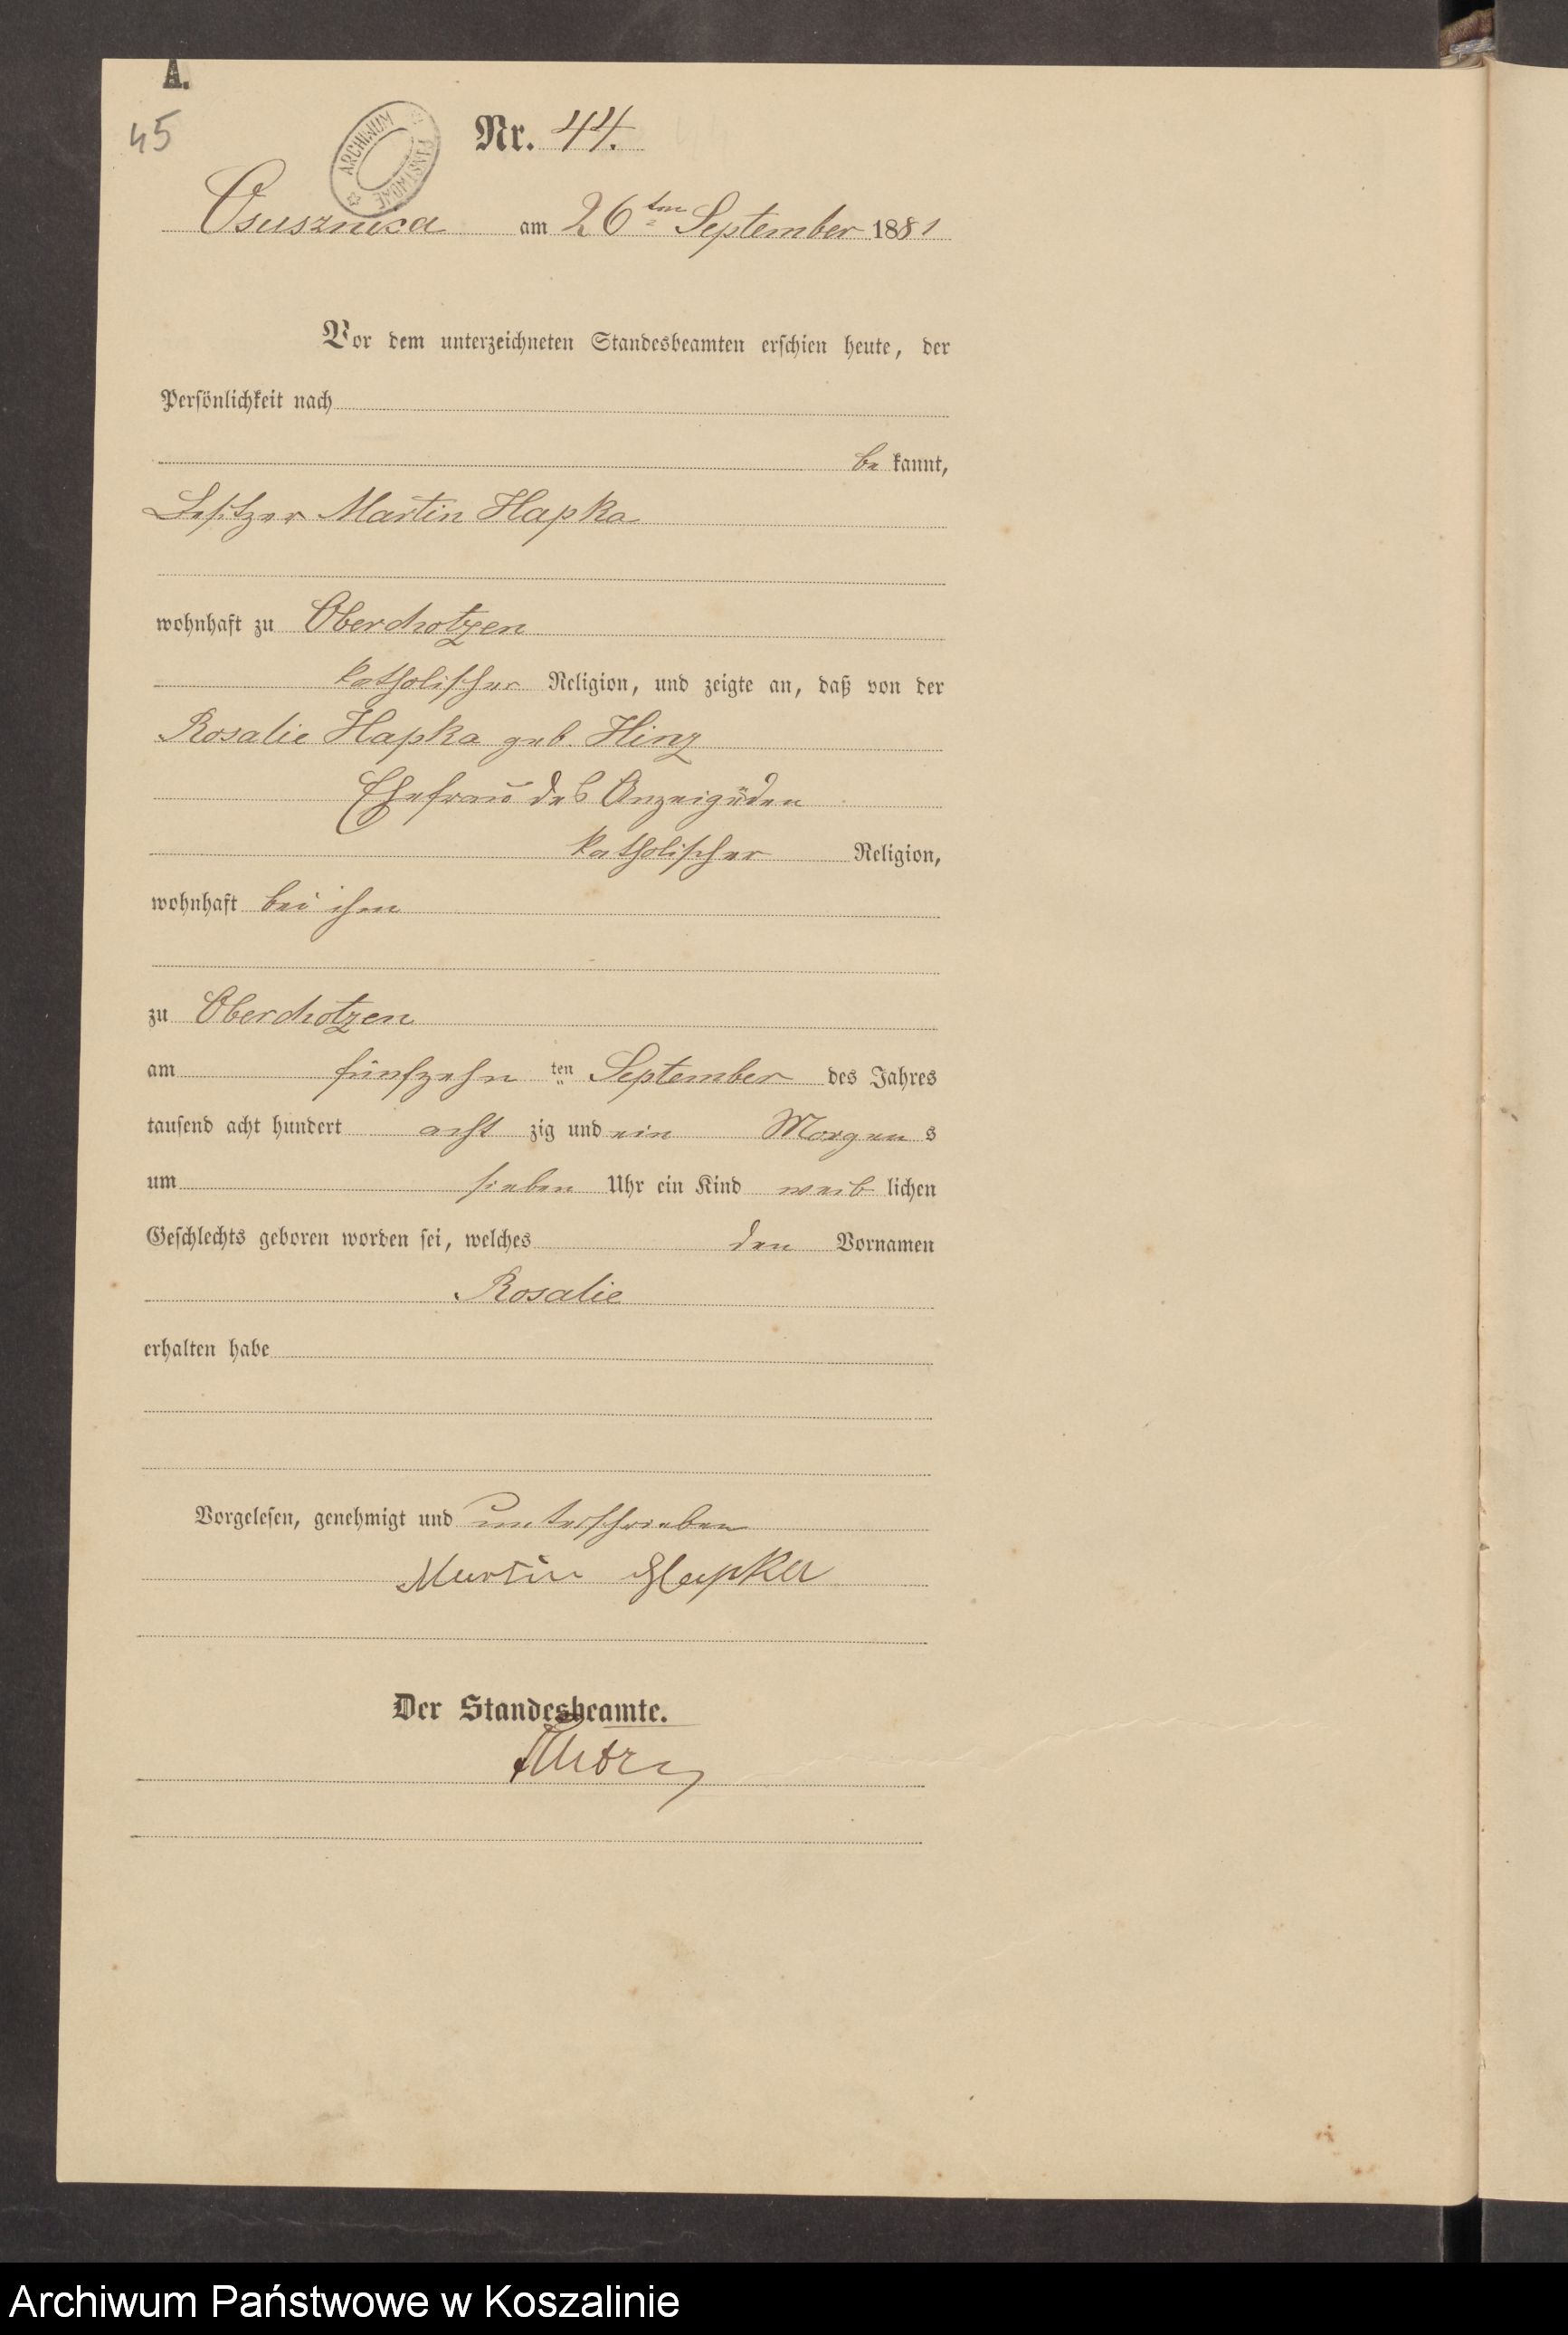 A.
45
ARCHIWUM PAŃSTWOWE
Nr. 44.
Osusznica am 26ten September 1881
Vor dem unterzeichneten Standesbeamten erschien heute, der
Persönlichkeit nach
be kannt,
Besitzer Martin Hapka
wohnhaft zu Oberchotzen
katholischer Religion, und zeigte an, daß von der
Rosalie Hapka geb. Hinz
Ehefrau des Anzeigenden
katholischer Religion,
wohnhaft bei ihm
zu Oberchotzen
am fünfzehn ten September des Jahres
tausend acht hundert acht zig und ein Morgen s
um sieben Uhr ein Kind weib lichen
Geschlechts geboren worden sei, welches den Vornamen
Rosalie
erhalten habe
Vorgelesen, genehmigt und unterschrieben
Martin Hapka
Der Standesbeamte.
Archiwum Państwowe w Koszalinie